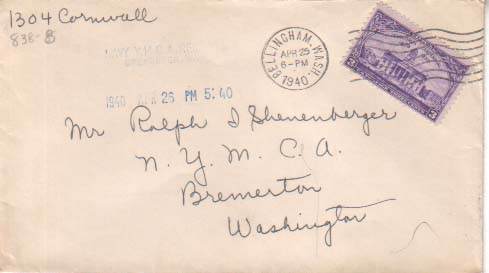 1304 Cornwall
838-B
BELLINGHAM, WASH.
APR 25
6-PM
1940
1940 APR 26 PM 5:40
Mr Ralph I Shenenberger
N. Y. M. C. A.
Bremerton
Washington